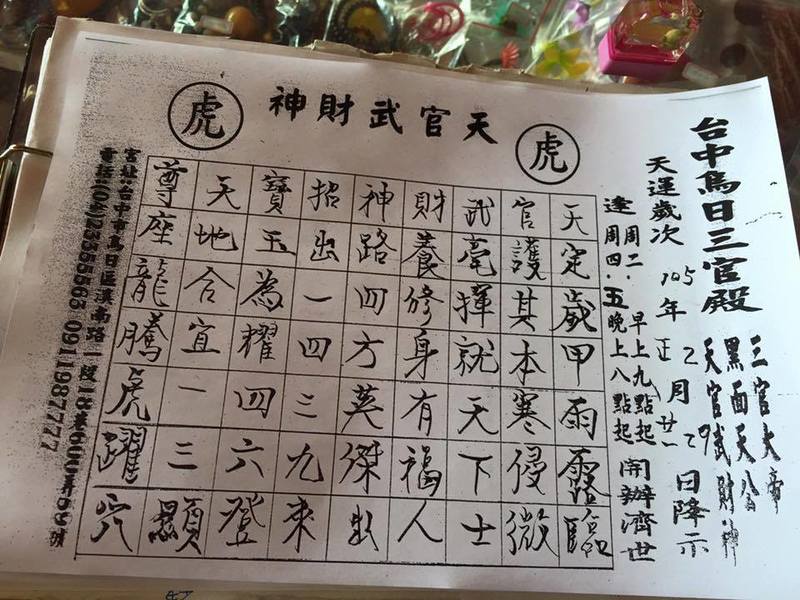 台中烏日三官殿
三官大帝
黑面天公
天官武財神
天運歲次 105年
日降示
逢周二·早上九點起
周四·五晚上八點起
開辦濟世
虎
天官武財神
虎
天定歲甲雨露臨
官護其本寒侵微
武毫揮就天下士
財養修身有福人
神路四方英傑出
招出一四三九來
寶玉為耀四六登
天地合宜一三顯
尊座龍騰虎躍穴
宮址:台中市烏日區溪南路一段
電話:(04)23355563 0911987777